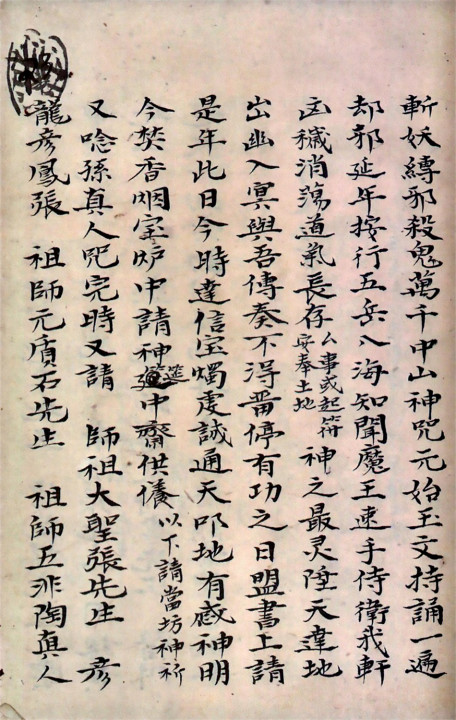 斬妖縛邪殺鬼萬千中山神咒元始玉文持誦一遍
却邪延年按行五岳八海知聞魔王速手侍衛我軒
凶穢消蕩道氣長存公事或起符安奉土地神之最灵陞天達地
出幽入冥與吾傳奏不得畱停有功之日盟書上請
是年此日今時達信宝燭虔誠通天叩地有感神明
今焚香烟宝炉中請神筵中齋供儀以下請當坊神祈
又唸孫真人咒完時又請 師祖大聖張先生 彦
龍彦鳳張 祖師元貭石先生 祖師五非陶真人